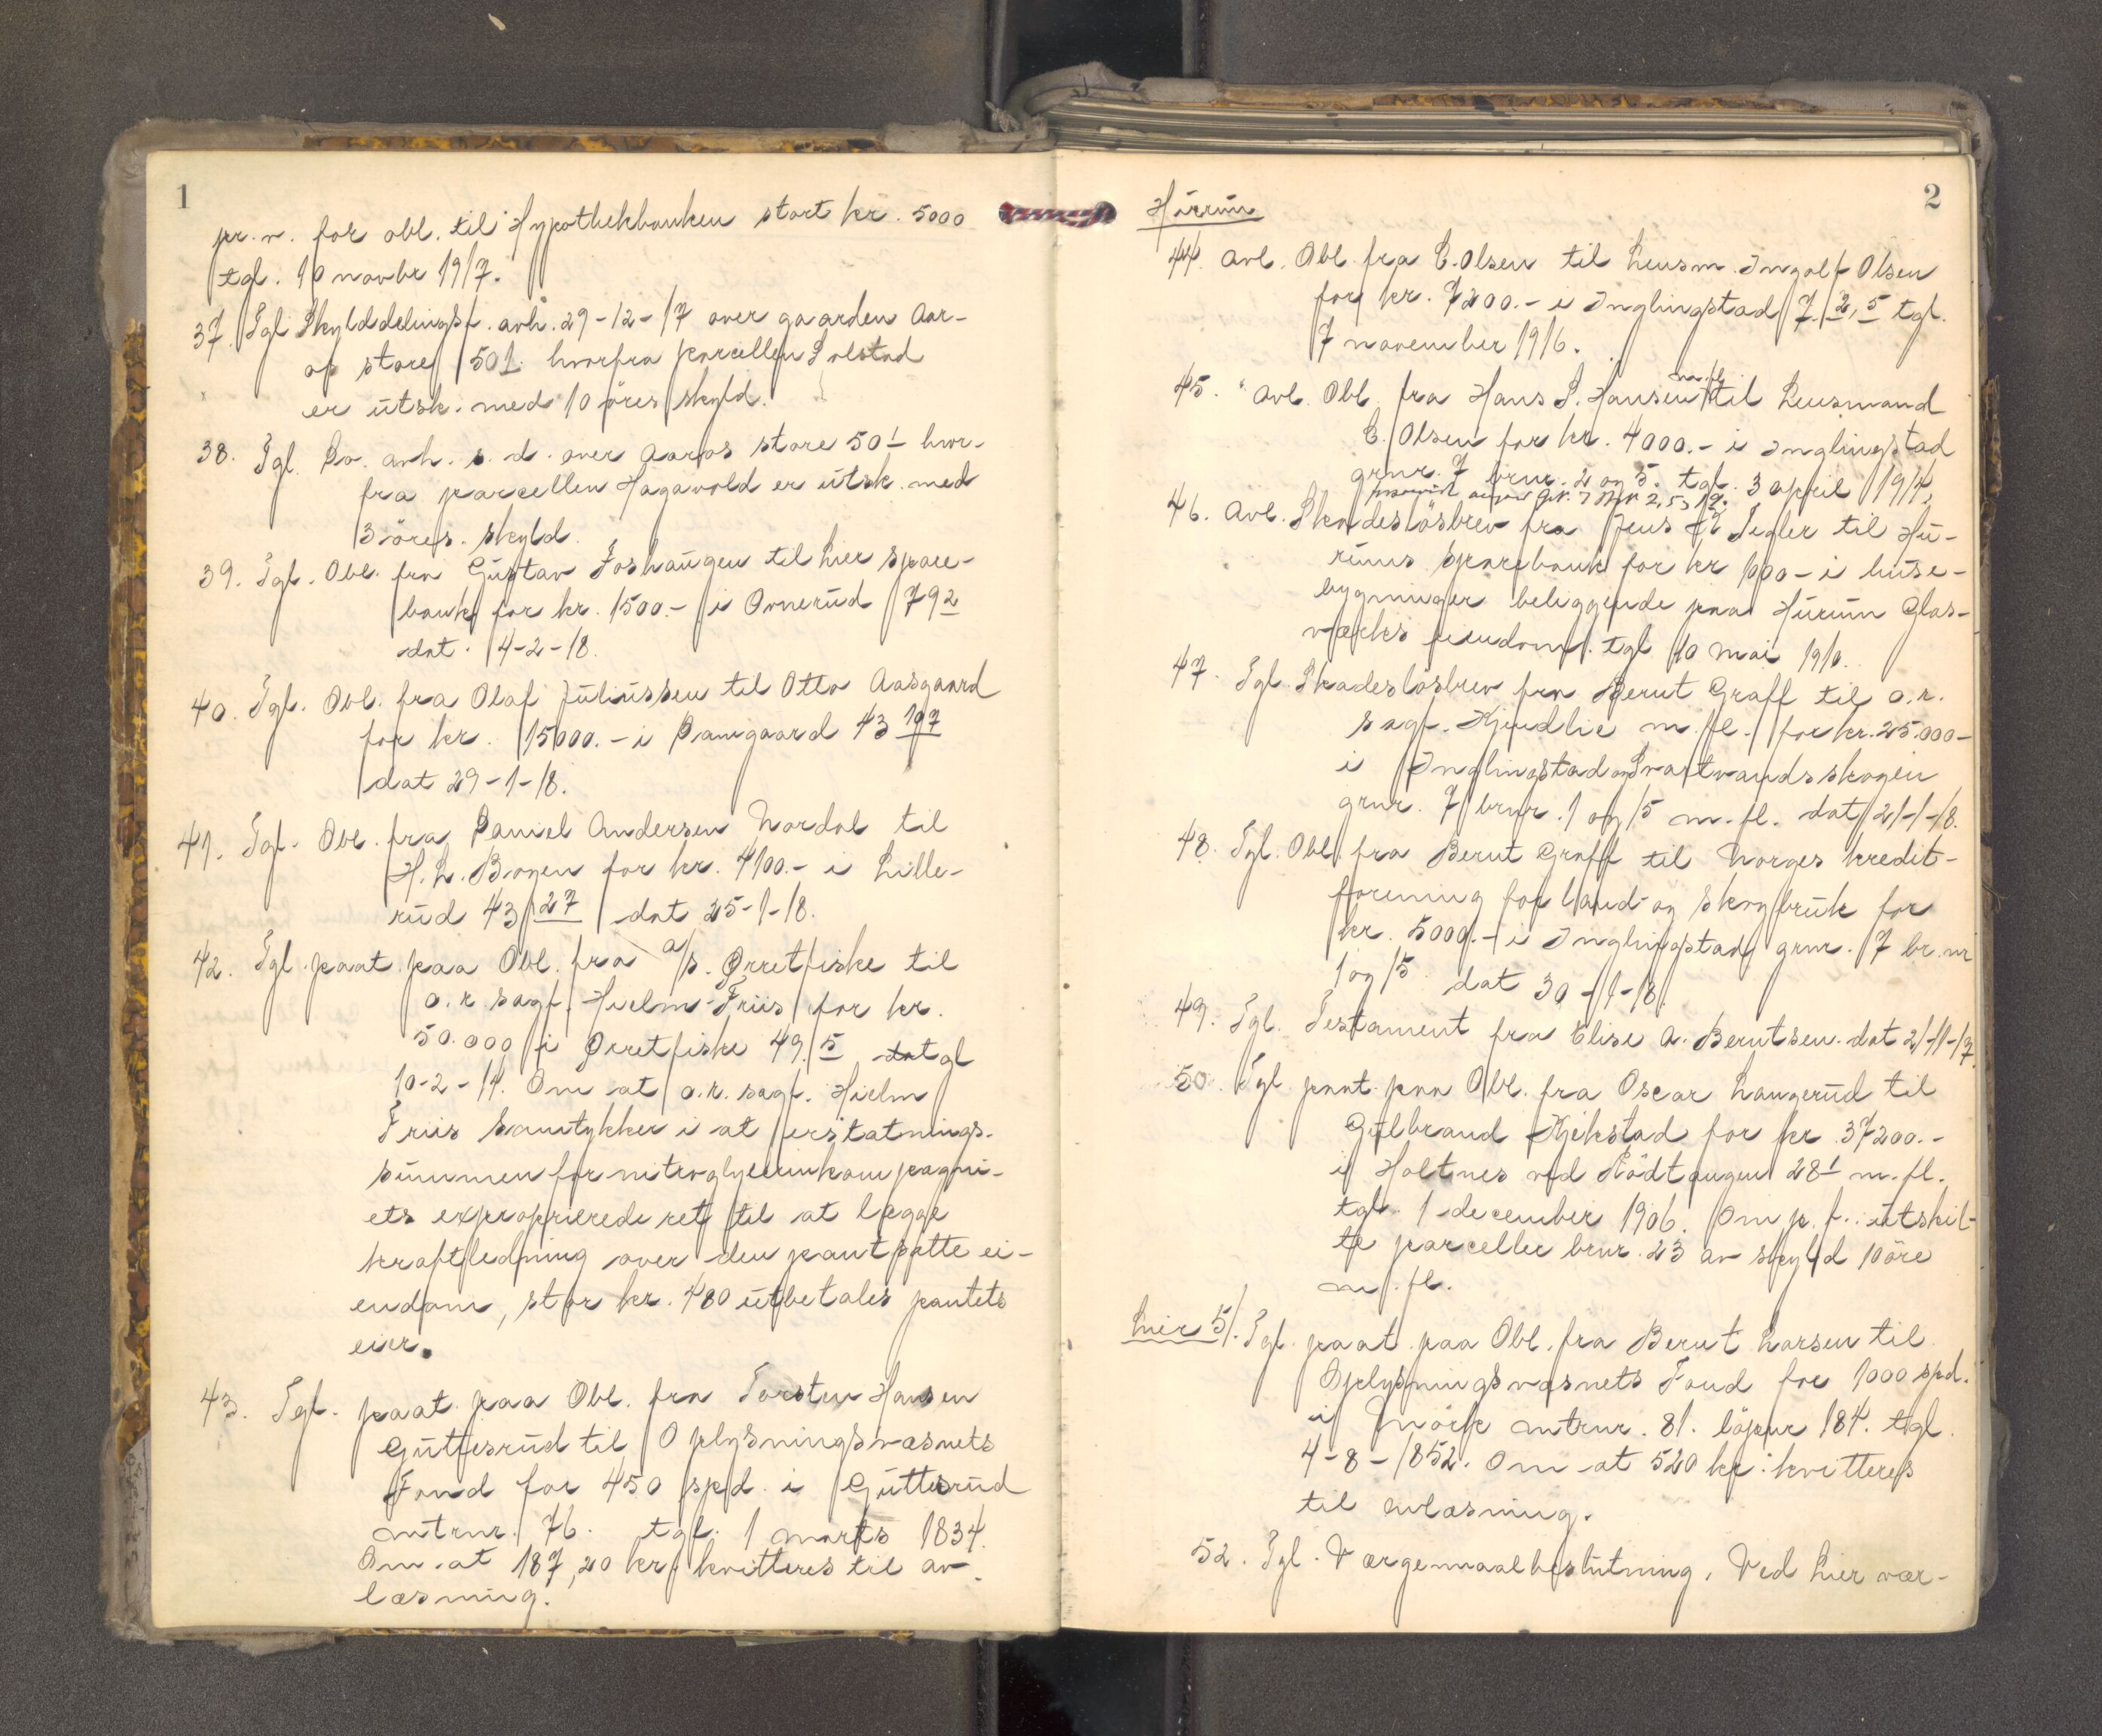 1
pr. v. for obl. til Hypothekbanken stort kr. 5000
tgl. 10 novbr 1917.
37. Tgl. Skylddelingsf. avh. 29-12-17 over gaarden Aar-
os store 50 1 hvorfra parcellen Solstad
er utsk. med 10 øres skyld.
38. Tgl. Do. avh. s. d. over Aaros store 50 1 hvor-
fra parcellen Hagavold er utsk. med
3 öres. skyld.
39. Tgl. Obl. fra Gustav Foshaugen til Lier spare-
bank for kr. 1500.- i Ovnerud 79 2
dat. 4-2-18.
40. Tgl. Obl. fra Olaf Juliussen til Otto Aasgaard
for kr. 15000.- i Damgaard 43 197
dat 29-1-18.
41. Tgl. Obl. fra Daniel Andersen Nordal til
H. L. Bogen for kr. 4100.- i Lille-
rud 43 27 dat 25-1-18.
42. Tgl. paat. paa Obl. fra a/s. Ørretfiske til
o. r. sagf. Hielm-Friis for kr.
50.000 i Ørretfiske 49 5 tgl
10-2-14. Om at o. r. sagf. Hielm
Friis samtykker i at erstatnings-
summen for nitroglycerinkompagni-
ets exproprierede ret til at lægge
kraftledning over den pantsatte ei-
endom, stor kr. 480 utbetales pantets
eier.
43. Tgl. paat. paa Obl. fra Torsten Hansen
Guttesrud til Oplysningsvæsnets
Fond for 450 spd. i Guttesrud
mtrnr. 76. tgl. 1 marts 1834.
Om at 187,20 kr. kvitteres til av-
læsning.
2
Hurum
44. Avl. Obl. fra C. Olsen til Lensm. Ingolf Olsen
for kr. 7200.- i Inglingstad 7 2,5 tgl.
7 november 1916.
45. Avl. Obl. fra Hans S. Hansen m. fl. til Lensmand
C. Olsen for kr. 4000.- i Inglingstad
grnr. 7 brnr. 2 og 5. tgl. 3 april 1914.
46. Avl. Skadeslösbrev fra Jens Tegler til Hu-
rums sparebank for kr 1000- i huse-
bygninger beliggende paa Hurum Glas-
værks eiendom. tgl 10 mai 1910.
47. Tgl. Skadeslösbrev fra Bernt Graff til o. r.
sagf. Kjendlie m. fl. for kr. 25.000-
i Inglingstad og Svartvandsskogen
grnr. 7 brnr. 1 og 15 m. fl. dat 21-1-18.
48. Tgl. Obl. fra Bernt Graff til Norges kredit-
forening for land- og skogbruk for
kr. 5000.- i Inglingstad grnr. 7 br. nr
1 og 15. dat 30-1-18.
49. Tgl. Testament fra Elise A. Berntsen. dat 21-11-17.
50. Tgl. paat. paa Obl. fra Oscar Langerud til
Gulbrand Kjekstad for kr 37200.-
i Holtnes ved Rödtangen 28 1 m. fl.
tgl. 1 december 1906. Om p. f. utskil-
te parceller brnr. 23 av skyld 10 öre
m. fl.
Lier 51. Tgl. paat. paa Obl. fra Bernt Larsen til
Oplysningsvæsnets Fond for 1000 spd.
i Mörk mtrnr. 81. löpnr 184. tgl.
4-8-1852. Om at 520 kr. kvitteres
til avlæsning.
52. Tgl. Værgemaalbeslutning. Ved Lier vær-